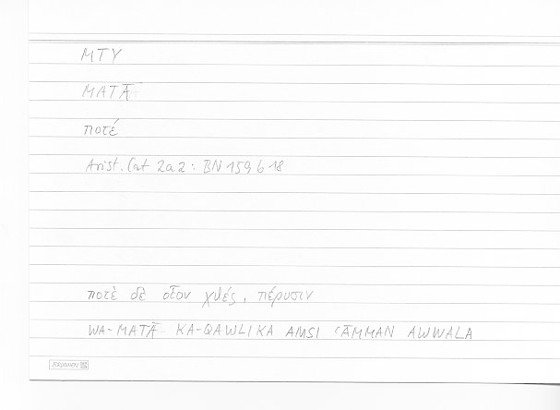 MTY
MATĀ
ποτέ
Arist. Cat 2a2 : BN 159b18
ποτὲ δὲ οἷον χθές, πέρυσιν
WA-MATĀ KA-QAWLIKA AMSI ʿĀMMAN AWWALA